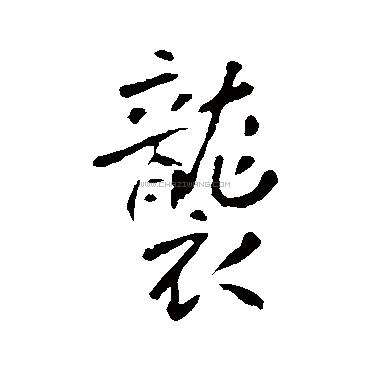 襲
WWW.CHAZIWANG.COM